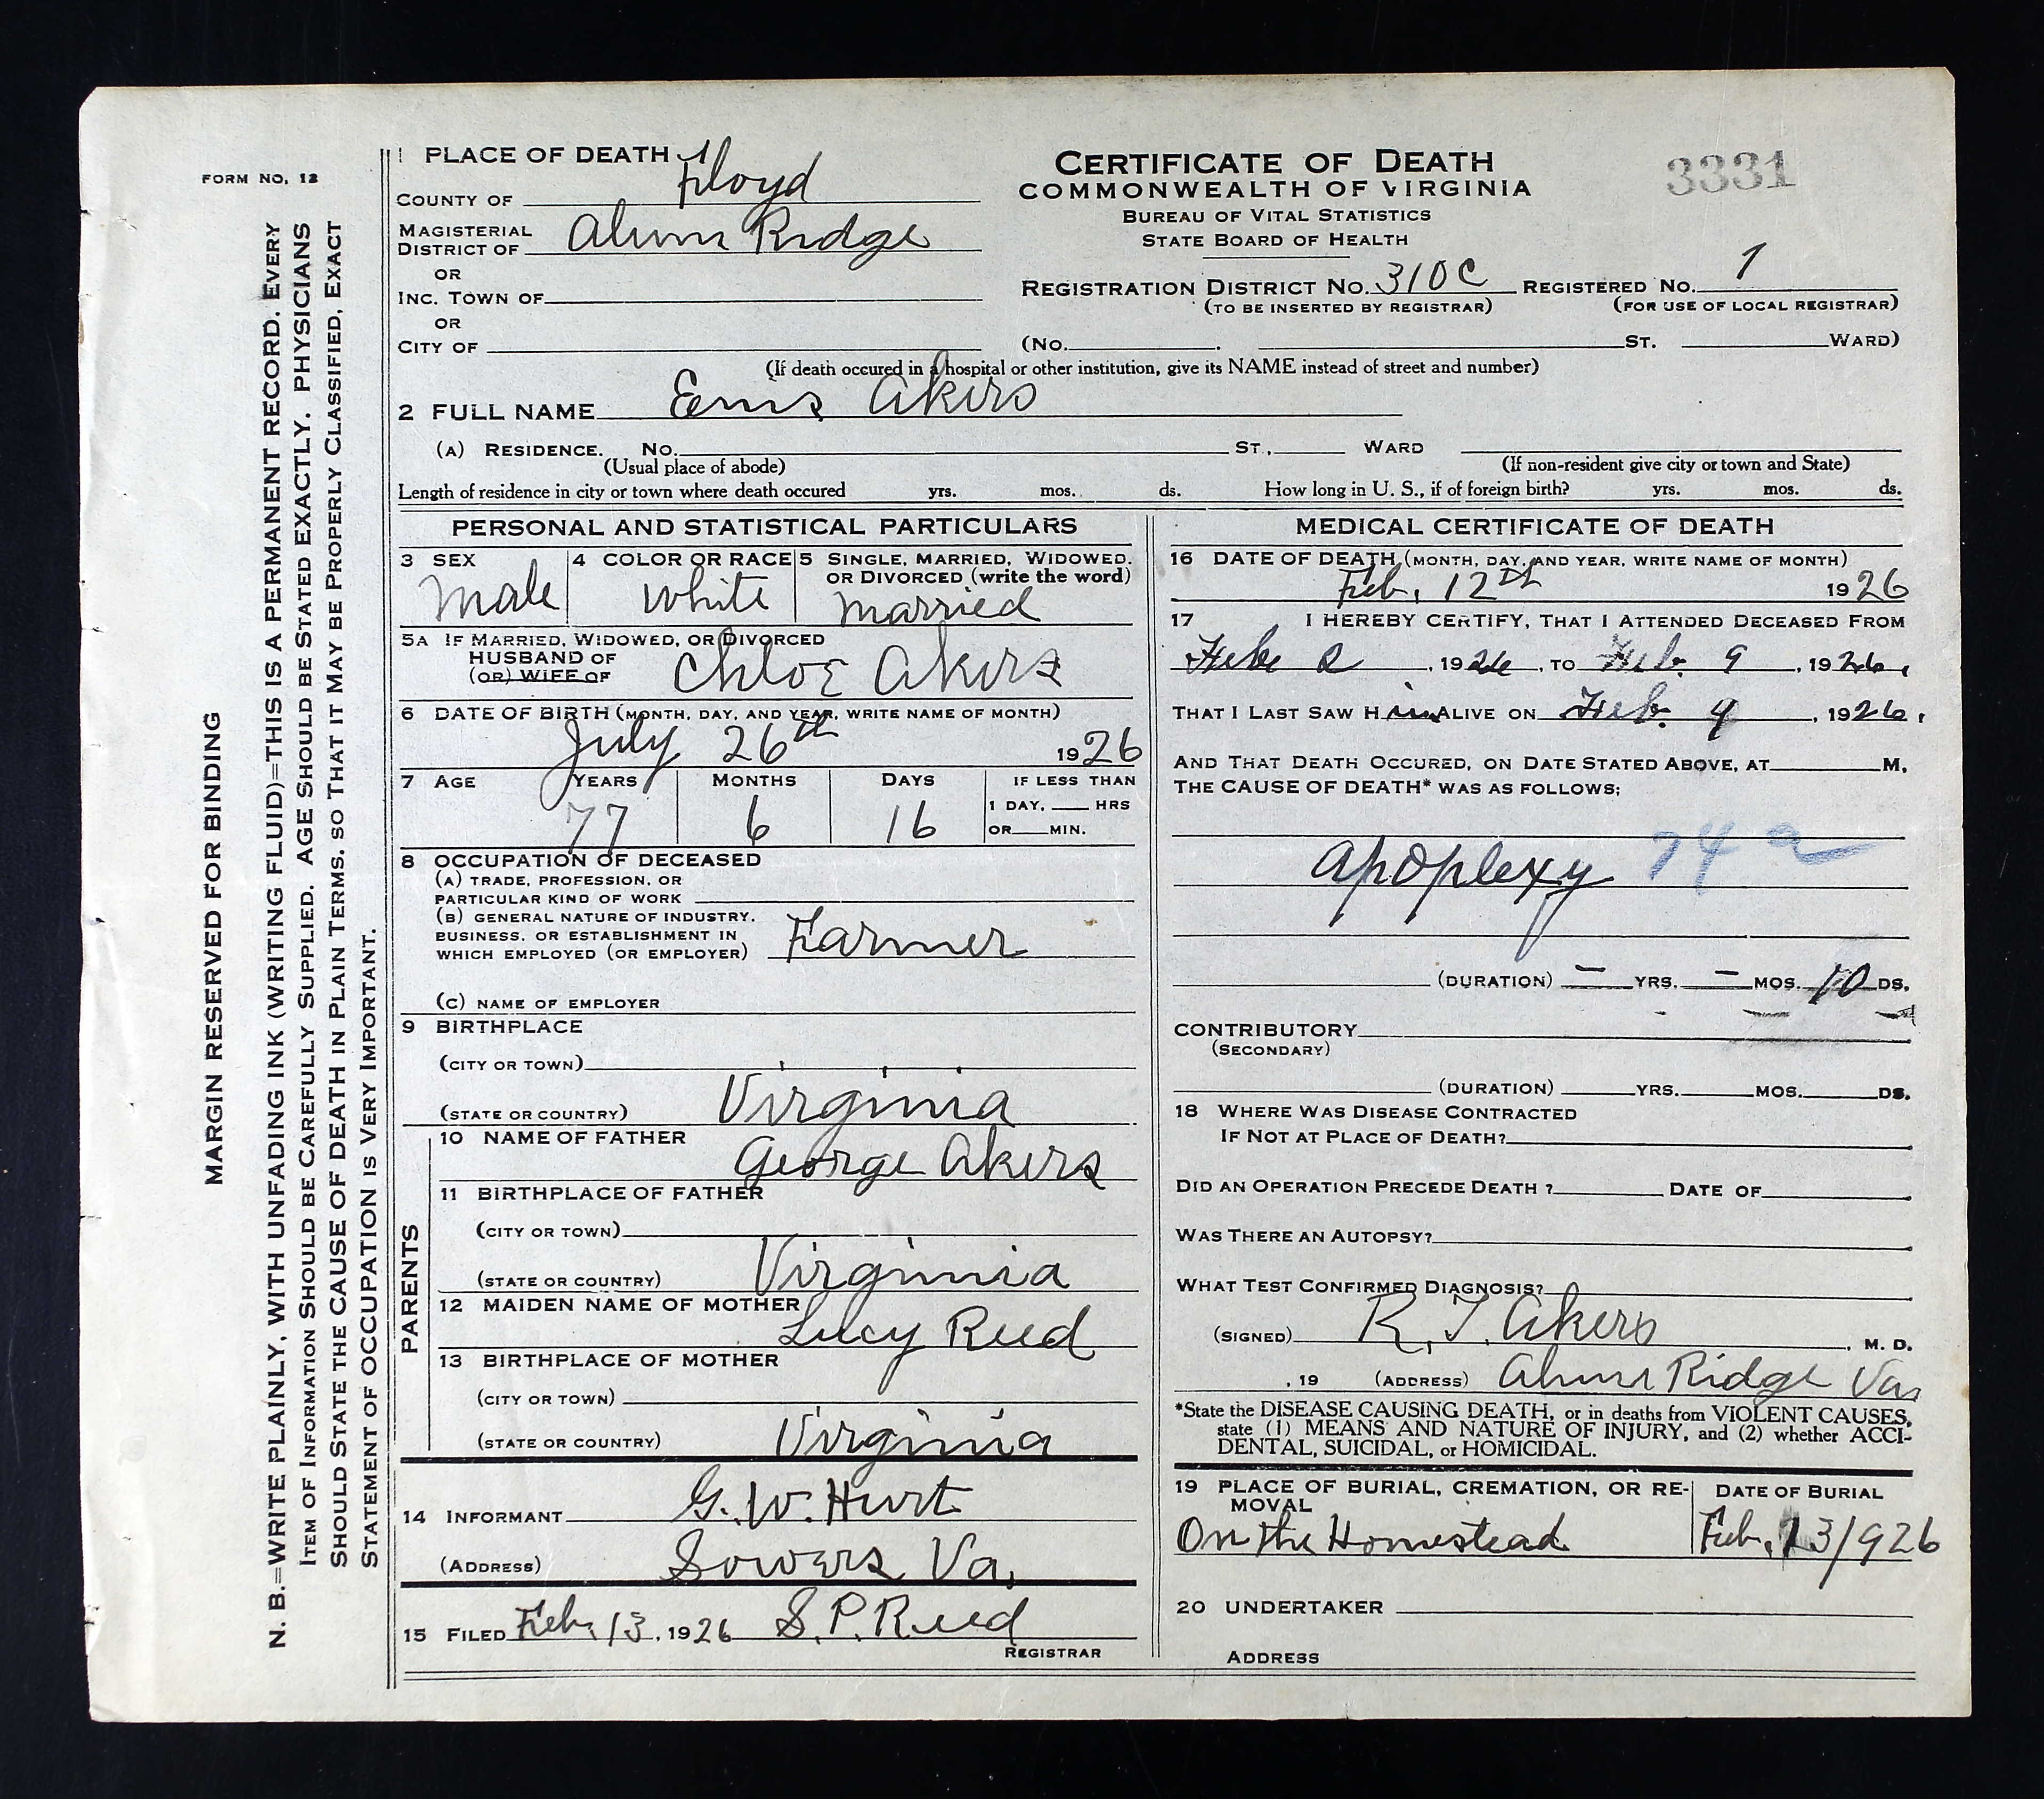 FORM NO. 12
MARGIN RESERVED FOR BINDING
N. B.=WRITE PLAINLY, WITH UNFADING INK (WRITING FLUID)=THIS IS A PERMANENT RECORD. EVERY
ITEM OF INFORMATION SHOULD BE CAREFULLY SUPPLIED. AGE SHOULD BE STATED EXACTLY. PHYSICIANS
SHOULD STATE THE CAUSE OF DEATH IN PLAIN TERMS, SO THAT IT MAY BE PROPERLY CLASSIFIED, EXACT
STATEMENT OF OCCUPATION IS VERY IMPORTANT.
1 PLACE OF DEATH
COUNTY OF Floyd
MAGISTERIAL DISTRICT OF Alum Ridge
OR
INC. TOWN OF
OR
CITY OF
CERTIFICATE OF DEATH
COMMONWEALTH OF VIRGINIA
BUREAU OF VITAL STATISTICS
STATE BOARD OF HEALTH
3331
REGISTRATION DISTRICT NO. 310C REGISTERED NO. 1
(TO BE INSERTED BY REGISTRAR) (FOR USE OF LOCAL REGISTRAR)
(No. . ST. WARD)
(If death occured in a hospital or other institution, give its NAME instead of street and number)
2 FULL NAME Akers
(A) RESIDENCE. No. ST., WARD
(Usual place of abode) (If non-resident give city or town and State)
Length of residence in city or town where death occured yrs. mos. ds. How long in U. S., if of foreign birth? yrs. mos. ds.
PERSONAL AND STATISTICAL PARTICULARS
3 SEX
Male
4 COLOR OR RACE
White
5 SINGLE, MARRIED, WIDOWED.
OR DIVORCED (write the word)
Married
5A IF MARRIED, WIDOWED, OR DIVORCED
HUSBAND OF
(OR) WIFE OF
Chloe Akers
6 DATE OF BIRTH (MONTH, DAY, AND YEAR, WRITE NAME OF MONTH)
July 26th 1926
7 AGE YEARS MONTHS DAYS IF LESS THAN
1 DAY, HRS
OR MIN.
77 6 16
8 OCCUPATION OF DECEASED
(A) TRADE, PROFESSION, OR
PARTICULAR KIND OF WORK
(B) GENERAL NATURE OF INDUSTRY,
BUSINESS, OR ESTABLISHMENT IN
WHICH EMPLOYED (OR EMPLOYER) Farmer
(C) NAME OF EMPLOYER
9 BIRTHPLACE
(CITY OR TOWN)
(STATE OR COUNTRY) Virginia
PARENTS
10 NAME OF FATHER
George Akers
11 BIRTHPLACE OF FATHER
(CITY OR TOWN)
(STATE OR COUNTRY) Virginia
12 MAIDEN NAME OF MOTHER
Lucy Reed
13 BIRTHPLACE OF MOTHER
(CITY OR TOWN)
(STATE OR COUNTRY) Virginia
14 INFORMANT G. W. Hurt
(ADDRESS) Sowers Va.
15 FILED Feb. 13, 1926 S. P. Reed
REGISTRAR
MEDICAL CERTIFICATE OF DEATH
16 DATE OF DEATH (MONTH, DAY, AND YEAR, WRITE NAME OF MONTH)
Feb. 12th 1926
17 I HEREBY CERTIFY, THAT I ATTENDED DECEASED FROM
Feb 2, 1926, TO Feb. 9, 1926,
THAT I LAST SAW H im ALIVE ON Feb. 9, 1926,
AND THAT DEATH OCCURED, ON DATE STATED ABOVE, AT M.
THE CAUSE OF DEATH* WAS AS FOLLOWS;
Apoplexy 74 a
(DURATION) — YRS. — MOS. 10 DS.
CONTRIBUTORY
(SECONDARY)
(DURATION) YRS. MOS. DS.
18 WHERE WAS DISEASE CONTRACTED
IF NOT AT PLACE OF DEATH?
DID AN OPERATION PRECEDE DEATH ? DATE OF
WAS THERE AN AUTOPSY?
WHAT TEST CONFIRMED DIAGNOSIS?
(SIGNED) R. T. Akers, M. D.
, 19 (ADDRESS) Alum Ridge Va
*State the DISEASE CAUSING DEATH, or in deaths from VIOLENT CAUSES,
state (1) MEANS AND NATURE OF INJURY, and (2) whether ACCI-
DENTAL, SUICIDAL, or HOMICIDAL.
19 PLACE OF BURIAL, CREMATION, OR RE-
MOVAL
On the Homestead
DATE OF BURIAL
Feb. 13/926
20 UNDERTAKER
ADDRESS